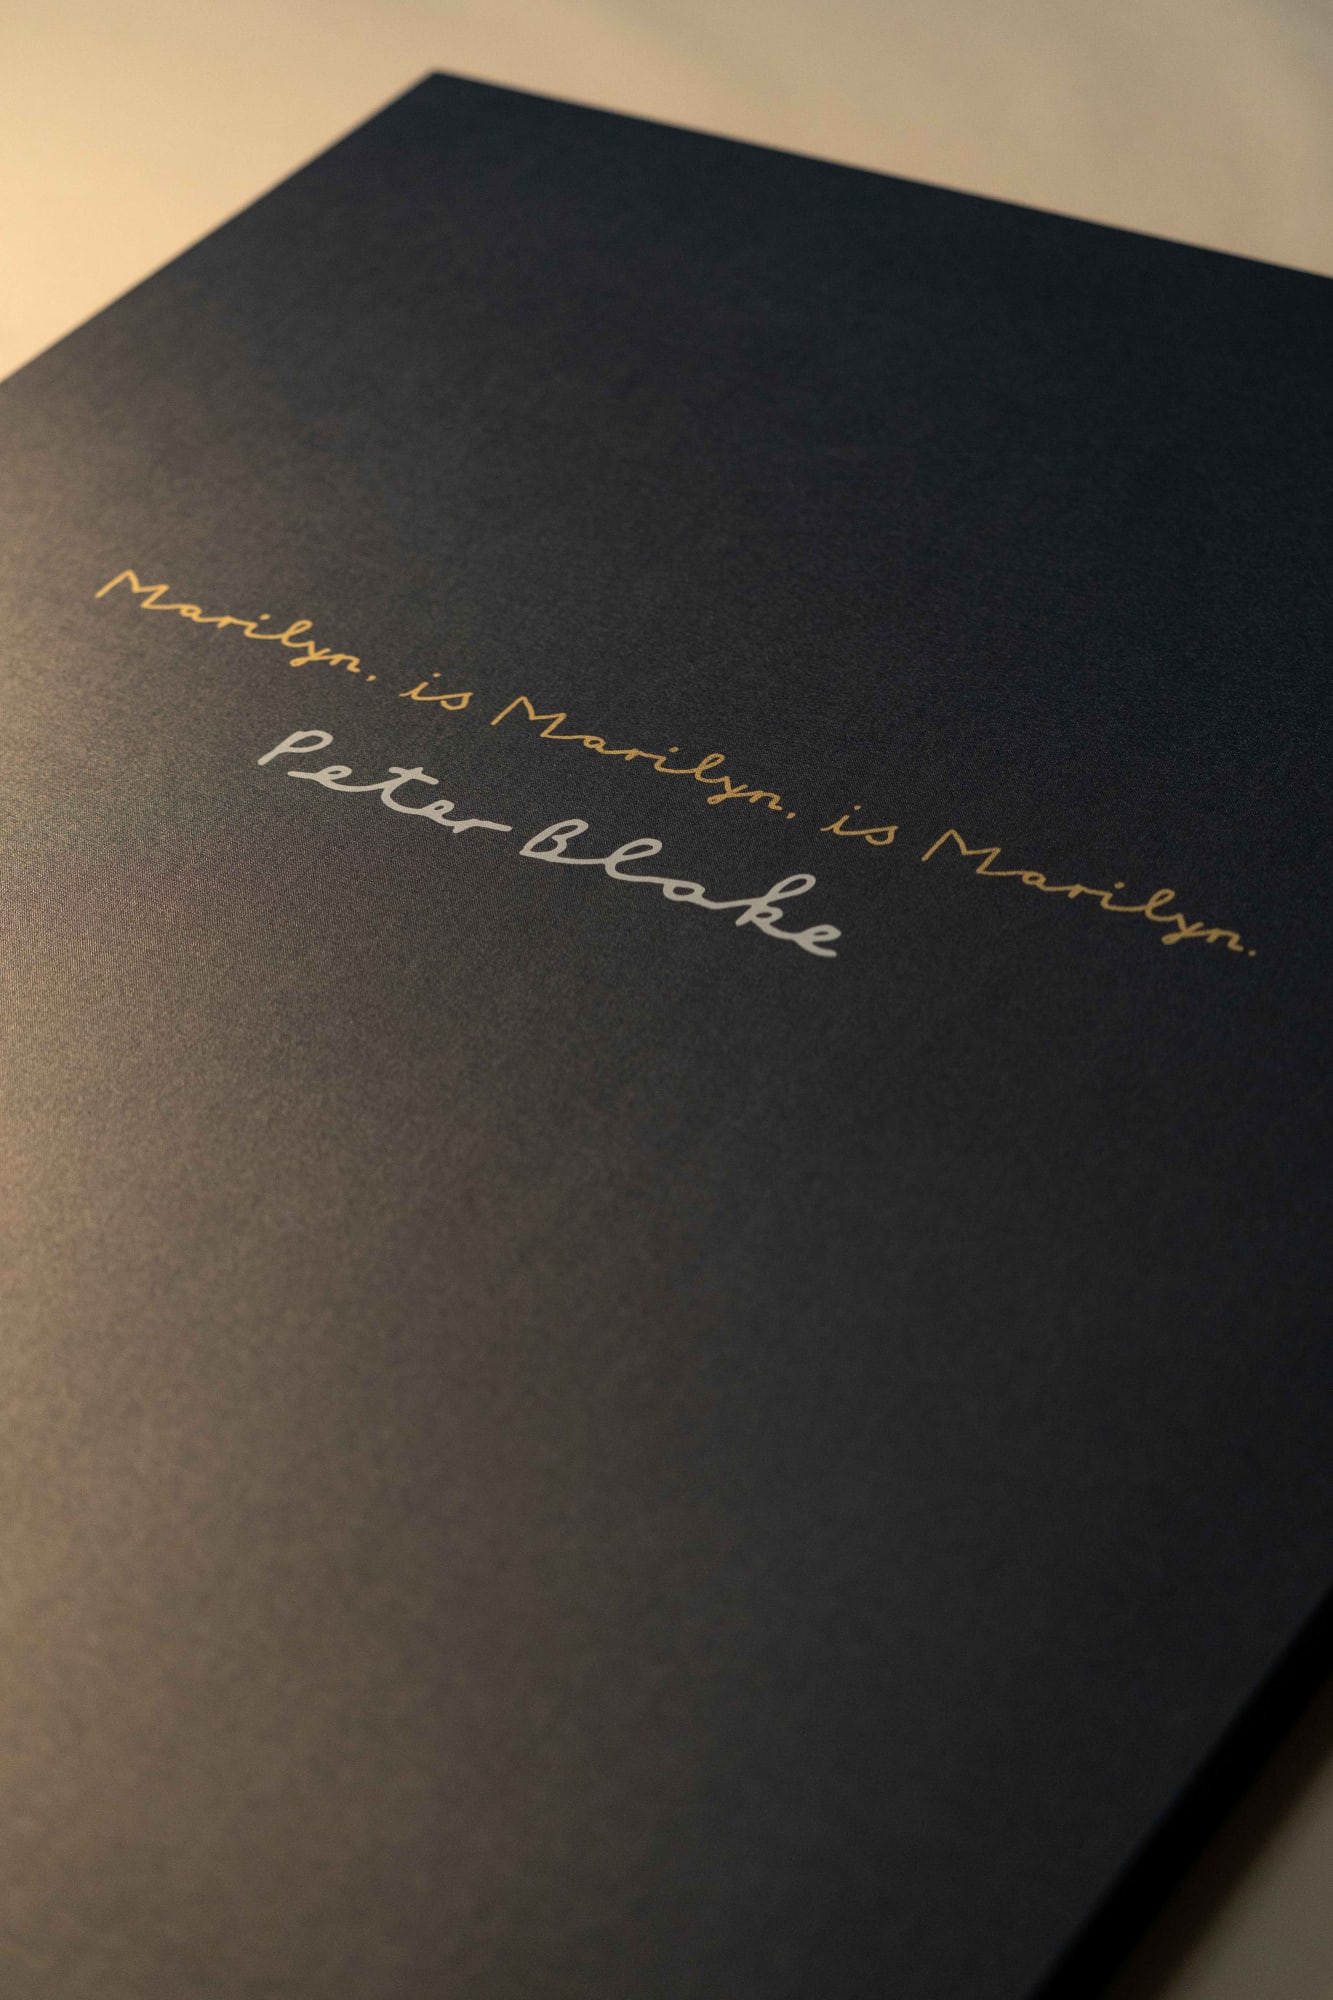 Marilyn, is Marilyn, is Marilyn.
Peter Blake